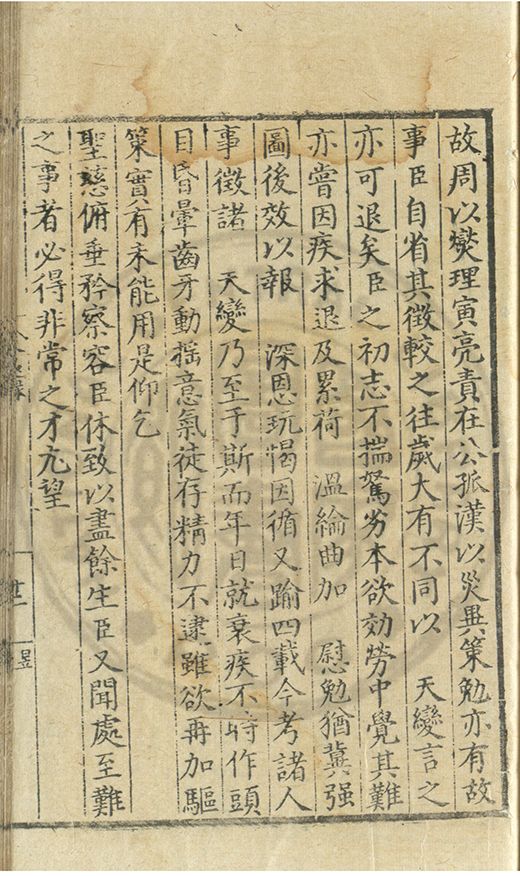 故周以爕理寅亮責在公孤漢以災異策勉亦有故
事臣自省其徵較之往歲大有不同以　天變言之
亦可退矣臣之初志不揣駑劣本欲効勞中覺其難
亦嘗因疾求退及累荷　溫綸曲加　慰勉猶冀强
圖後效以報　深恩玩愒因循又踰四載今考諸人
事徵諸　天變乃至于斯而年日就衰疾不時作頭
目昏暈齒牙動搖意氣徒存精力不逮雖欲再加驅
策實有未能用是仰乞
聖慈俯垂矜察容臣休致以盡餘生臣又聞處至難
之事者必得非常之才亢望
昱